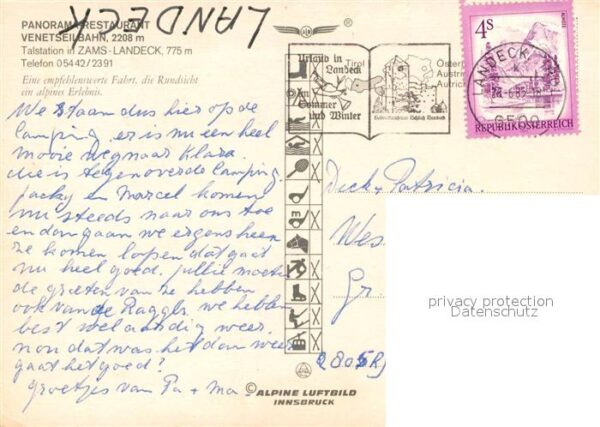 LANDECK
PANORAMARESTAURANT
VENETSEILBAHN, 2208 m
Talstation in ZAMS-LANDECK, 775 m
Telefon 0 54 42 / 23 91
Eine empfehlenswerte Fahrt, die Rundsicht
ein alpines Erlebnis.
We staan dus hier op de
Camping, er is nu een heel
mooie weg naar Klara
die is tegenover de Camping.
Jacky en Marcel komen
nu steeds naar ons toe
en dan gaan we ergens heen
ze komen lopen dat gaat
nu heel goed. jullie moeten
de groeten van ze hebben
ook van de Raggls. we hebben
best wel aardig weer.
nou dat was het dan weer
gaat het goed?
Groetjes van Pa + ma
Urlaub in
Landeck
im
Sommer
und Winter
Tirol
Österr
Austri
Autric
LANDECK
28-6.85-18
6500
4S
REPUBLIK ÖSTERREICH
Dick + Patricia
Wes
Gr
2805 RJ
privacy protection
Datenschutz
© ALPINE LUFTBILD
INNSBRUCK